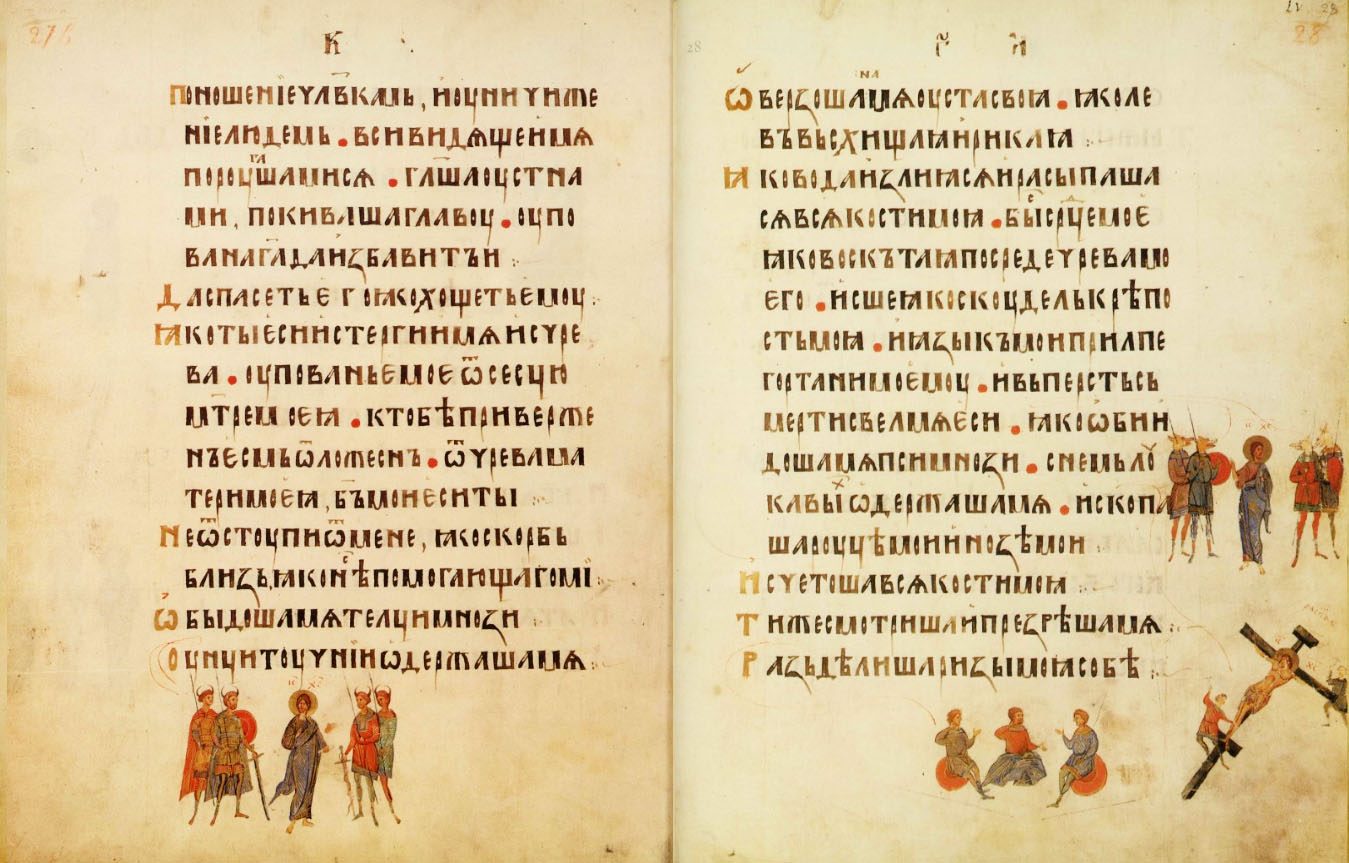 27б
К
поношениѥ ул҃вкамь, и оуничиже
ниѥ людемь. вси видѧщеи мѧ
пороугашамисѧ. гл҃аша оустна
ми, покиваша главоу. оупо
ва на г҃а да избавитъ и
Да спасеть ѥго ꙗко хощеть ѥмоу
ꙗко ты ѥси истергии мѧ исчре
ва. оупованьѥ моѥ ѿ сесцю
мт҃ре моѥꙗ. к тобѣ приверже
нъ ѥсмь ѿ ложеснъ. ѿ чрева ма
тери моѥꙗ, б҃ъ мои ѥси ты
Не ѿстоупи ѿ мене, ꙗко скорбь
близь, ꙗко нѣс помогающаго ми
Ѡбыдоша мѧ телци мнози
оуньци тоучнии ѡдержаша мѧ
ІС ХС
28
П҃ И
LV 28
28
Ѡверзоша на мѧ оуста своꙗ. ꙗко ле
въ въсхищаꙗ и рикаꙗ
ꙗко вода излиꙗсѧ и расыпаша
сѧ всѧ кости моꙗ. бы с҃рце моѥ
ꙗко воскъ таꙗ посреде чрева мо
ѥго. исше ꙗко скоудель крѣпо
сть моꙗ. и ꙗзыкъ мои прилпе
гортани моѥмоу. и въ персть съ
мерти свелъ мѧ ѥси. ꙗко ѡбии
доша мѧ пси мнози. снемь лоу
кавыхъ ѡдержаша мѧ. ископа
ша роуцѣ мои и нозѣ мои
Исчетоша всѧ кости моꙗ
Ти же смотриша и презрѣша мѧ
Разъдѣлиша ризы моꙗ собѣ
ІС ХС